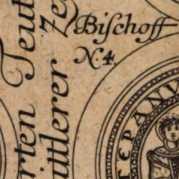 Bischoff
N. 4.
rten Teut
ittlerer ze
TEPANV